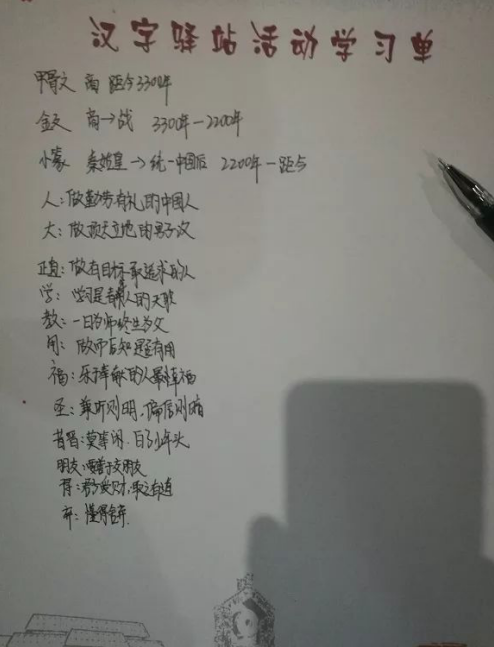 汉字驿站活动学习单
甲骨文 商 距今3300年
金文 商→战 3300年—2200年
小篆 秦始皇→统一中国后 2200年—距今
人：做勤劳有礼的中国人
大：做顶天立地的男子汉
正直：做有目标敢追求的人
学：学习是每个人的天职
教：一日为师终生为父
用：做而后知 有用
福：乐于奉献的人最幸福
圣：兼听则明，偏信则暗
昔：莫等闲.白了少年头
朋友：要善于交朋友
得：君子爱财，取之有道
弃：懂得舍弃.